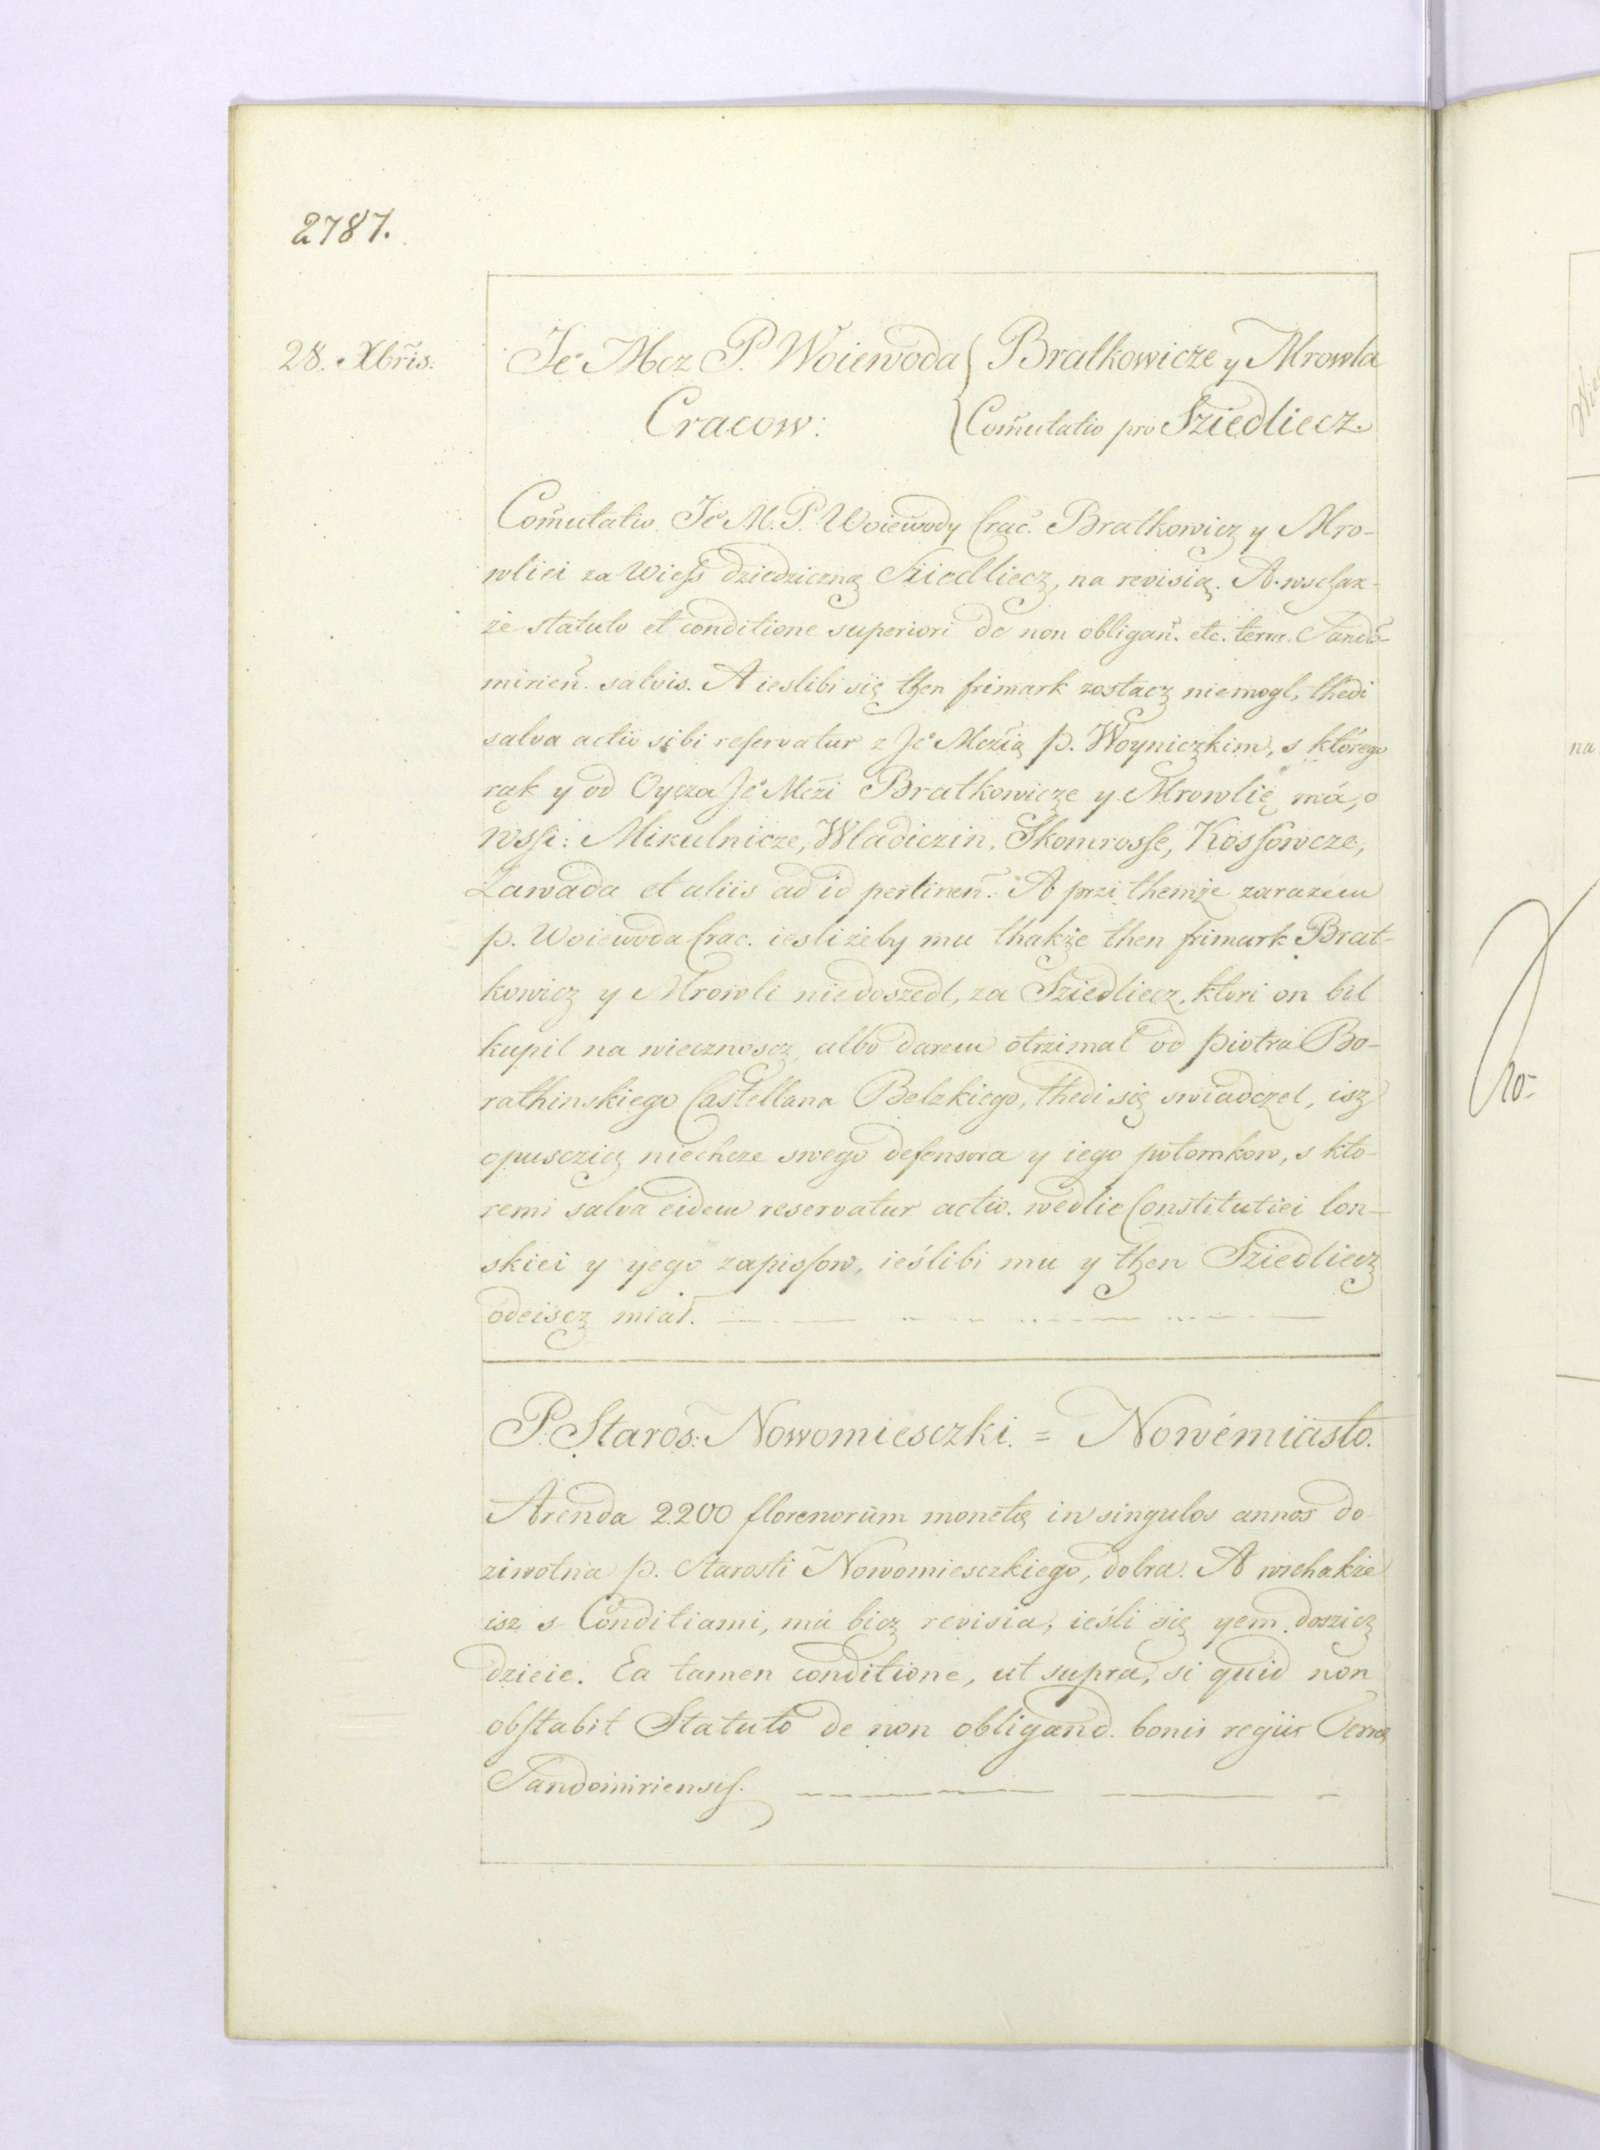 2787.
28. Xbris.
Je Mcz P. Woiewoda Bratkowicze y Mrowla
Cracow: Comutatio pro Sziedliecz.
Comutatio Je M. P. Woiewody Crac. Bratkowicz y Mro-
wliei za Wiess dziedziczną Sziedliecz, na revisią. A. wschak-
że statuto et conditione superiori de non obligan. etc. terrn. Sando-
mirien. salvis. A ieslibi się then frimark zostacz niemogl, thedi
salva actio sibi reservatur z Je Mczią p. Woyniczkim, s którego
rąk y od Oycza Je Mczi Bratkowicze y Mrowlię má, o
Wssi: Mikulnicze, Wladiczin, Skomrosse, Kossowcze,
Zawada et aliis ad id pertinen. A przi themże zarazem
p. Woiewoda Crac. iesliżeby mu thakże then frimark Brat-
kowicz y Mrowli niedoszedl, za Sziedliecz, ktori on bil
kupil na wiecznoscz albo darem otrzimal od Piotra Bo-
rathinskiego Castellana Belzkiego, thedi się swiadczel, isz
opusczicz niechcze swego defensora y iego potomkow, s kto-
remi salva eidem reservatur actio. wedlie Constitutiei lon-
skiei y yego zapissow, ieślibi mu y then Sziedliecz
odeiscz mial.
P. Staros: Nowomiesczki. = Nowémiasto.
Arenda 2200 florenorum monetę in singulos annos do-
ziwotna p. Starosti Nowomiesczkiego, dobra. A wschakże
isz s Conditiami, má bicz revisia, ieśli się yem doszicz
dzieie. Ea tamen conditione, ut supra, si quid non
obstabit Statuto de non obligand. bonis regiis Terrę
Sandomiriensis.
na